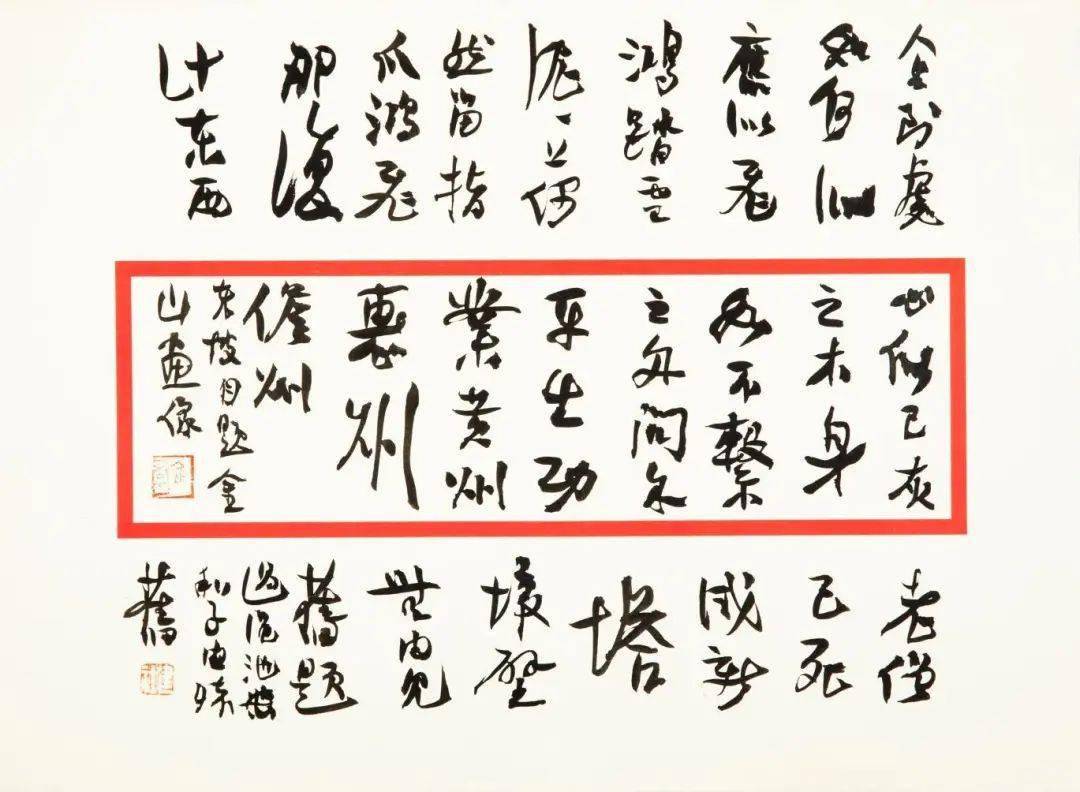 人生到處
知何似
應似飛
鴻踏雪
泥〻上偶
然留指
爪鴻飛
那復
計東西
心似已灰
之木身
如不繫
之舟問尔
平生功
業黄州
惠州
儋州
東坡自題金
山畫像
老僧
已死
成新
塔
壞壁
無由見
舊題
過澠池
和子由
舊